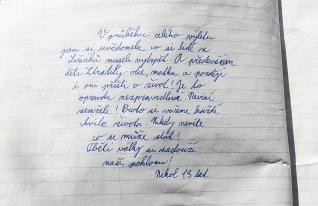 V průběhu celého výletu
jsem si uvědomila co si lidé z
Ležáků museli vytrpět. A především
děti. Ztratily otce, matku a později
i oni přišli o život! Je to
opravdu nespravedlivé. Nevinní
zemřeli! Proto si važme každé
chvíle života. Nikdy nevíte
co se může stát!
Oběti války si zaslouží
naši poklonu!
Nikol 13 let.